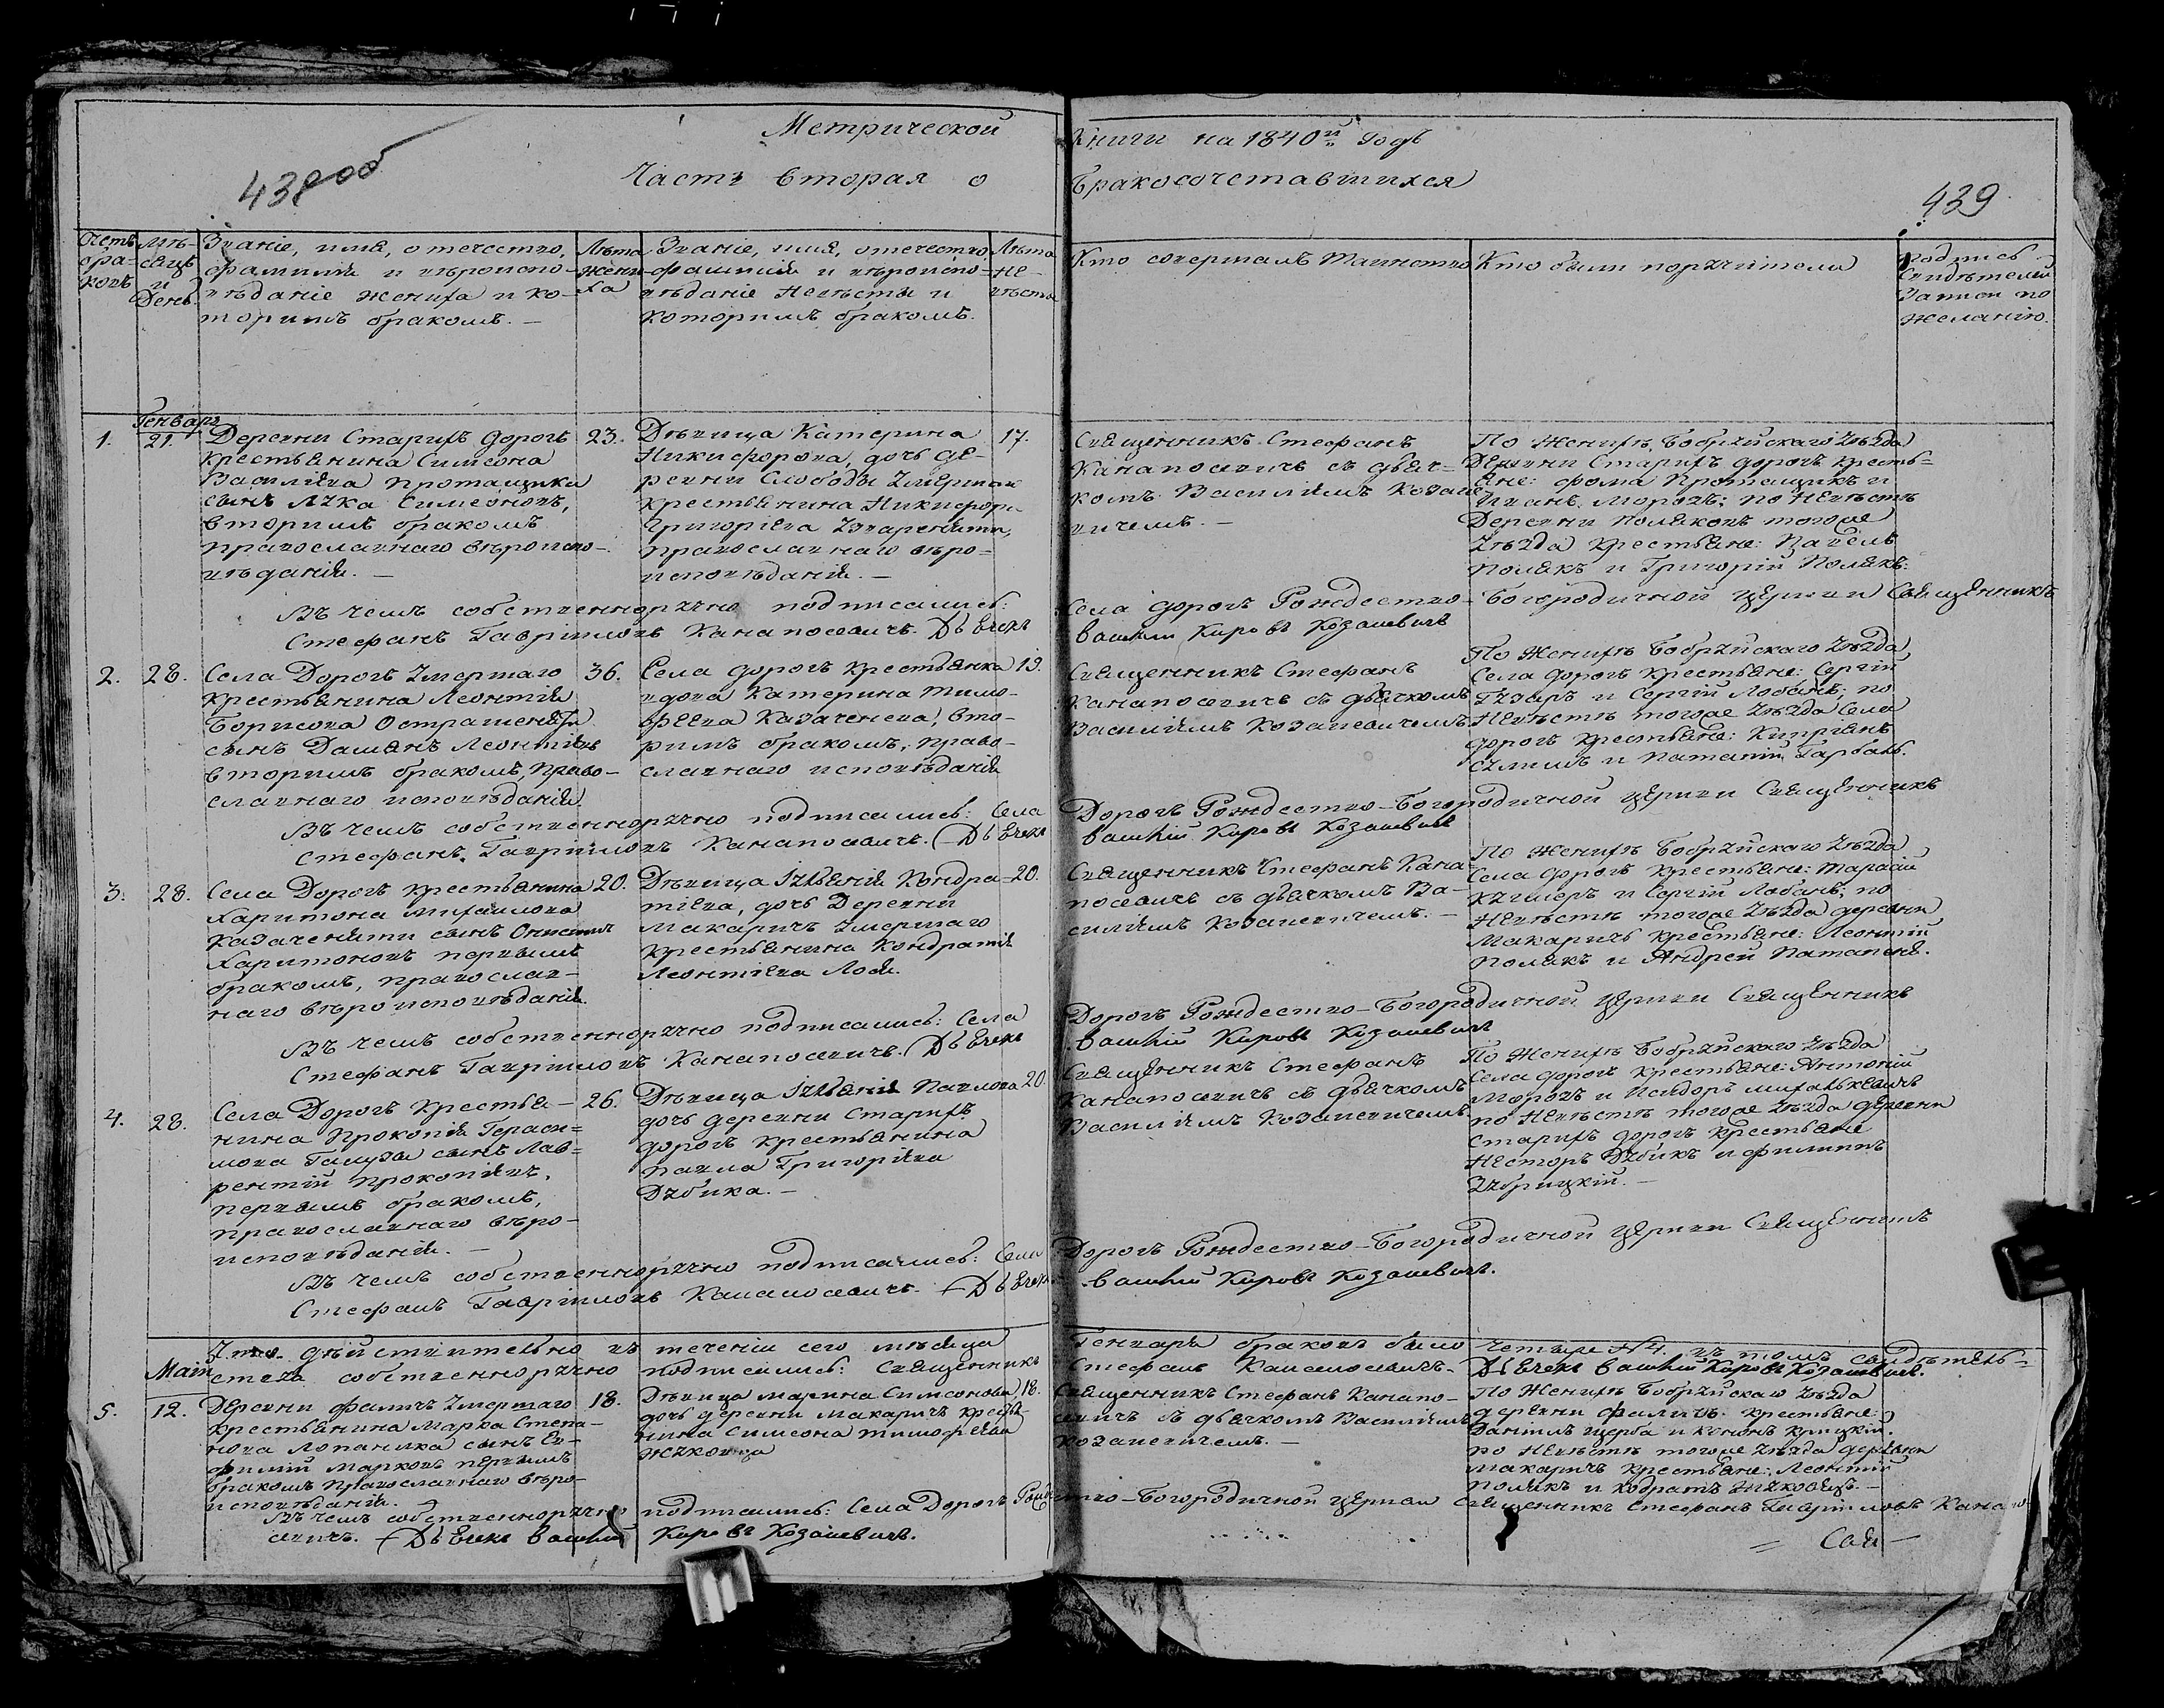 Метрической
Книги на 1840й годъ
Часть вторая о
бракосочетавшихся
438
439
Счетъ браковъ
Мѣсяцъ и день
Званіе, имя, отечество,
фамилія и вѣроиспо-
вѣданіе жениха и ко-
торимъ бракомъ. –
Лѣта
жени-
ха
Званіе, имя, отечество
фамилія и вѣроиспо-
вѣданіе невѣсты и
которимъ бракомъ.
Лѣта
не-
вѣсты
Кто совершалъ таинство
Кто были поручители
Подпись
свидѣтелей
записи по
желанію.
Генваря
1.
21.
Деревни Старихъ Дорогъ
крестьянина Симеона
Василіева Протащика
сынъ Лука Симеоновъ,
вторимъ бракомъ
православнаго вѣроиспо-
вѣданія. –
23.
Дѣвица Катерина
Никифорова, дочь де-
ревни Слободы умершаго
крестьянина Никифора
Григоріева
православнаго вѣро-
исповѣданія. –
17.
Священникъ Стефанъ
Канапосевичъ съ дьяч-
комъ Василіемъ Козаке-
вичемъ. –
По женихѣ Бобруйскаго уѣзда
деревни Старихъ дорогъ кресть-
яне: Фома Протащикъ и
Иванъ Морозъ; по невѣстѣ
деревни Поляковъ тогоже
уѣзда крестьяне: Павелъ
Полякъ и Григорій Полякъ.
Въ чемъ собственноручно подписались:
Села Дорогъ Рождество-Богородичной церкви Священникъ
Стефанъ Гавріиловъ Канапосевичъ. Дьячекъ
2.
28.
Села Дорогъ умершаго
крестьянина Леонтія
Борисова
сынъ Даміянъ Леонтіевъ
вторимъ бракомъ, право-
славнаго исповѣданія.
36.
Села Дорогъ крестьянка
вдова Катерина Тимо-
феева Казаченева, вто-
римъ бракомъ, право-
славнаго исповѣданія
19.
Священникъ Стефанъ
Канапосевичъ съ дьячкомъ
Василіемъ Козакевичемъ.
По женихѣ Бобруйскаго уѣзда
села Дорогъ крестьяне: Сергій
и Сергій Лобанъ; по
невѣстѣ тогоже уѣзда села
Дорогъ крестьяне: Кипріянъ
и Потапій Гарбань.
Въ чемъ собственноручно подписались: Села
Дорогъ Рождество-Богородичной церкви Священникъ
Стефанъ Гавріиловъ Канапосевичъ. Дьячекъ
3.
28.
Села Дорогъ крестьянина
Харитона Михаилова
сынъ
Харитоновъ первымъ
бракомъ, православ-
наго вѣроисповѣданія.
20.
Дѣвица Іуліанія Кондра-
тіева, дочь деревни
Макаричъ умершаго
крестьянина Кондратія
Леонтіева
20.
Священникъ Стефанъ Кана-
посевичъ съ дьячкомъ Ва-
силіемъ Козакевичемъ. –
По женихѣ Бобруйскаго уѣзда
села Дорогъ крестьяне: Тарасій
и Сергій Лобань; по
невѣстѣ тогоже уѣзда деревни
Макаричъ крестьяне: Леонтій
Полякъ и Андрей
Въ чемъ собственноручно подписались: Села
Дорогъ Рождество-Богородичной церкви Священникъ
Стефанъ Гавріиловъ Канапосевичъ. Дьячекъ
4.
28.
Села Дорогъ крестья-
нина Прокопія Гераси-
мова сынъ Лав-
рентій Прокопіевъ,
первымъ бракомъ,
православнаго вѣро-
исповѣданія. –
26.
Дѣвица Іуліанія Павлова
дочь деревни Старихъ
Дорогъ крестьянина
Павла Григоріева
Дубика. –
20.
Священникъ Стефанъ
Канапосевичъ съ дьячкомъ
Василіемъ Козакевичемъ.
По женихѣ Бобруйскаго уѣзда
села Дорогъ крестьяне: Антоній
Морозъ и Исидоръ
по невѣстѣ тогоже уѣзда деревни
Старихъ Дорогъ крестьяне
Несторъ Дубикъ и Филиппъ
Въ чемъ собственноручно подписались: Села
Дорогъ Рождество-Богородичной церкви Священникъ
Стефанъ Гавріиловъ Канапосевичъ. Дьячекъ
Что дѣйствительно въ теченіи сего мѣсяца
Генваря браковъ было четыре №4. въ томъ свидѣтель-
ства собственноручно подписались: Священникъ
Стефанъ Канапосевичъ. Дьячекъ
Маія
5.
12.
Деревни Фаличъ умершаго
крестьянина Марка Степа-
нова сынъ Ев-
фимій Марковъ первымъ
бракомъ православнаго вѣро-
исповѣданія.
18.
Дѣвица Марина Симеонова
дочь деревни Макаричъ
Симеона Тимофеева
18.
Священникъ Стефанъ Канапо-
севичъ съ дьячкомъ Василіемъ
Козакевичемъ. –
По женихѣ Бобруйскаго уѣзда
деревни Фаличъ крестьяне:
Даніилъ Щерба и
по невѣстѣ тогоже уѣзда деревни
Макаричъ крестьяне: Леонтій
Полякъ и
Въ чемъ собственноручно подписались: Села Дорогъ Рождество-Богородичной церкви Священникъ Стефанъ Гавріиловъ Канапо-
севичъ. Дьячекъ